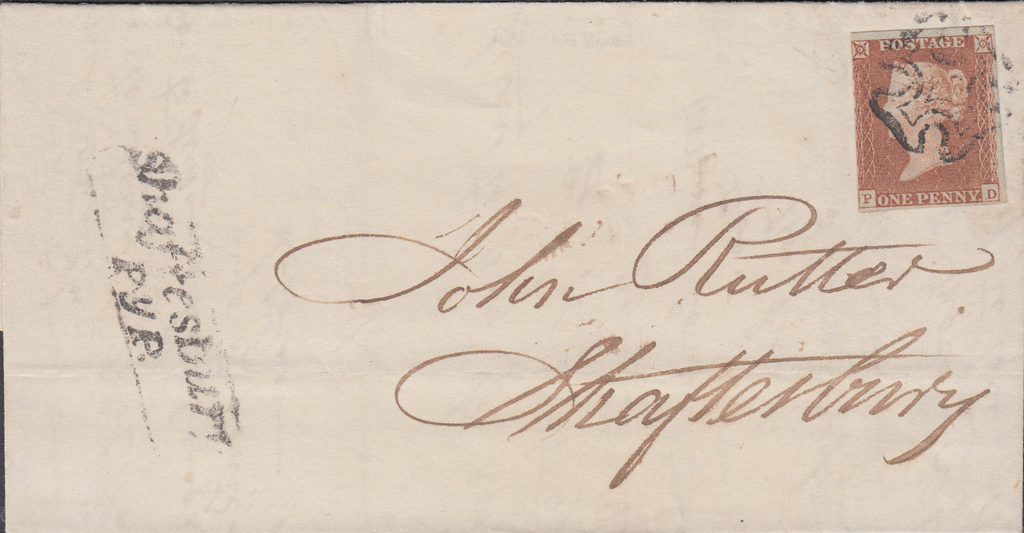 POSTAGE
P ONE PENNY D
John Rutter
Shaftesbury
Shaftesbury
PyP